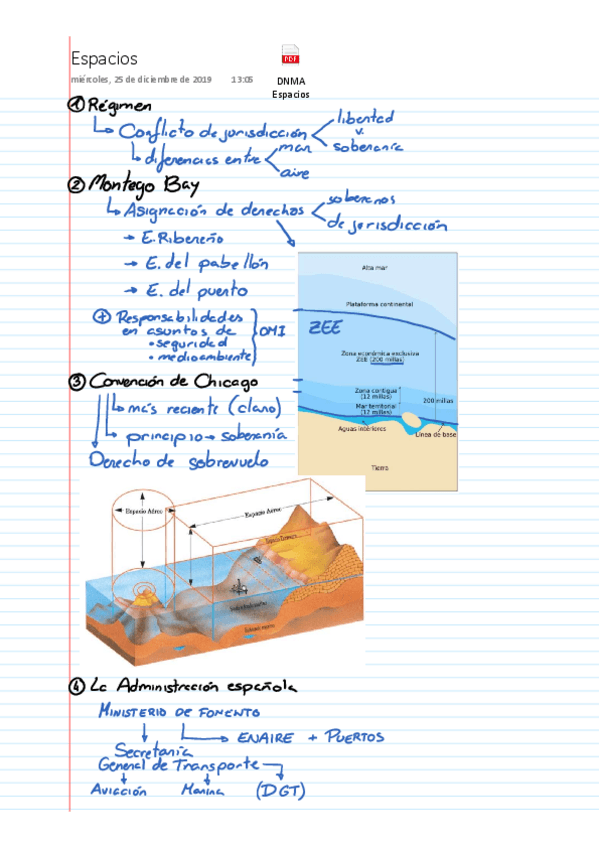 Espacios
miércoles, 25 de diciembre de 2019 13:05
PDF
DNMA
Espacios
① Régimen
Conflicto de jurisdicción
libertad
v.
soberanía
diferencias entre
mar
aire
② Montego Bay
Asignación de derechos
soberanos
de jurisdicción
→ E. Ribereño
→ E. del pabellón
→ E. del puerto
⊕ Responsabilidades
en asuntos de
• seguridad
• medioambiente
OMI
Alta mar
Plataforma continental
ZEE
Zona económica exclusiva
ZEE (200 millas)
Zona contigua
(12 millas)
Mar territorial
(12 millas)
200 millas
Aguas interiores
Línea de base
Tierra
③ Convención de Chicago
más reciente (claro)
principio → soberanía
Derecho de sobrevuelo
Espacio Aéreo
Espacio Aéreo
④ La Administración española
MINISTERIO DE FOMENTO
ENAIRE + PUERTOS
Secretaría
General de Transporte
Aviación Marina (DGT)